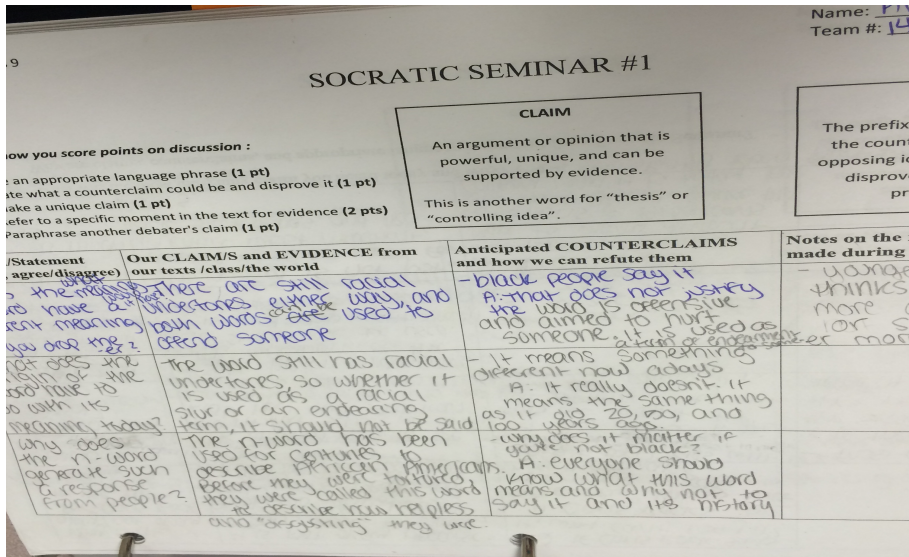 Name:
Team #: 14
.9
SOCRATIC SEMINAR #1
ow you score points on discussion :
e an appropriate language phrase (1 pt)
ate what a counterclaim could be and disprove it (1 pt)
ake a unique claim (1 pt)
efer to a specific moment in the text for evidence (2 pts)
Paraphrase another debater's claim (1 pt)
CLAIM
An argument or opinion that is
powerful, unique, and can be
supported by evidence.
This is another word for "thesis" or
"controlling idea".
The prefix
the coun
opposing i
disprov
pr
/Statement
agree/disagree)
Our CLAIM/S and EVIDENCE from
our texts /class/the world
Anticipated COUNTERCLAIMS
and how we can refute them
Notes on the
made during
the
have a
rent meaning
you drop the
-er?
There are still racial
undertones either way, and
both words can be used to
offend someone
-black people say it
A: that does not justify
the word is offensive
and aimed to hurt
someone. it is used as
a term of endearment
- younge
thinks
more
or s
er mor
does the
of the
word have to
o with its
meaning today?
-the word still has racial
undertones, so whether it
is used as a racial
slur or an endearing
term, it should not be said
- It means something
different now adays
A: it really doesn't. it
means the same thing
as it did 20, 50, and
100 years ago.
why does
the n-word
generate such
a response
from people?
-the n-word has been
used for centuries to
describe African Americans.
Before they were tortured,
they were called this word
to describe how helpless
and "disgusting" they were.
-why does it matter if
you're not black?
A. everyone should
know what this word
means and why not to
say it and its history